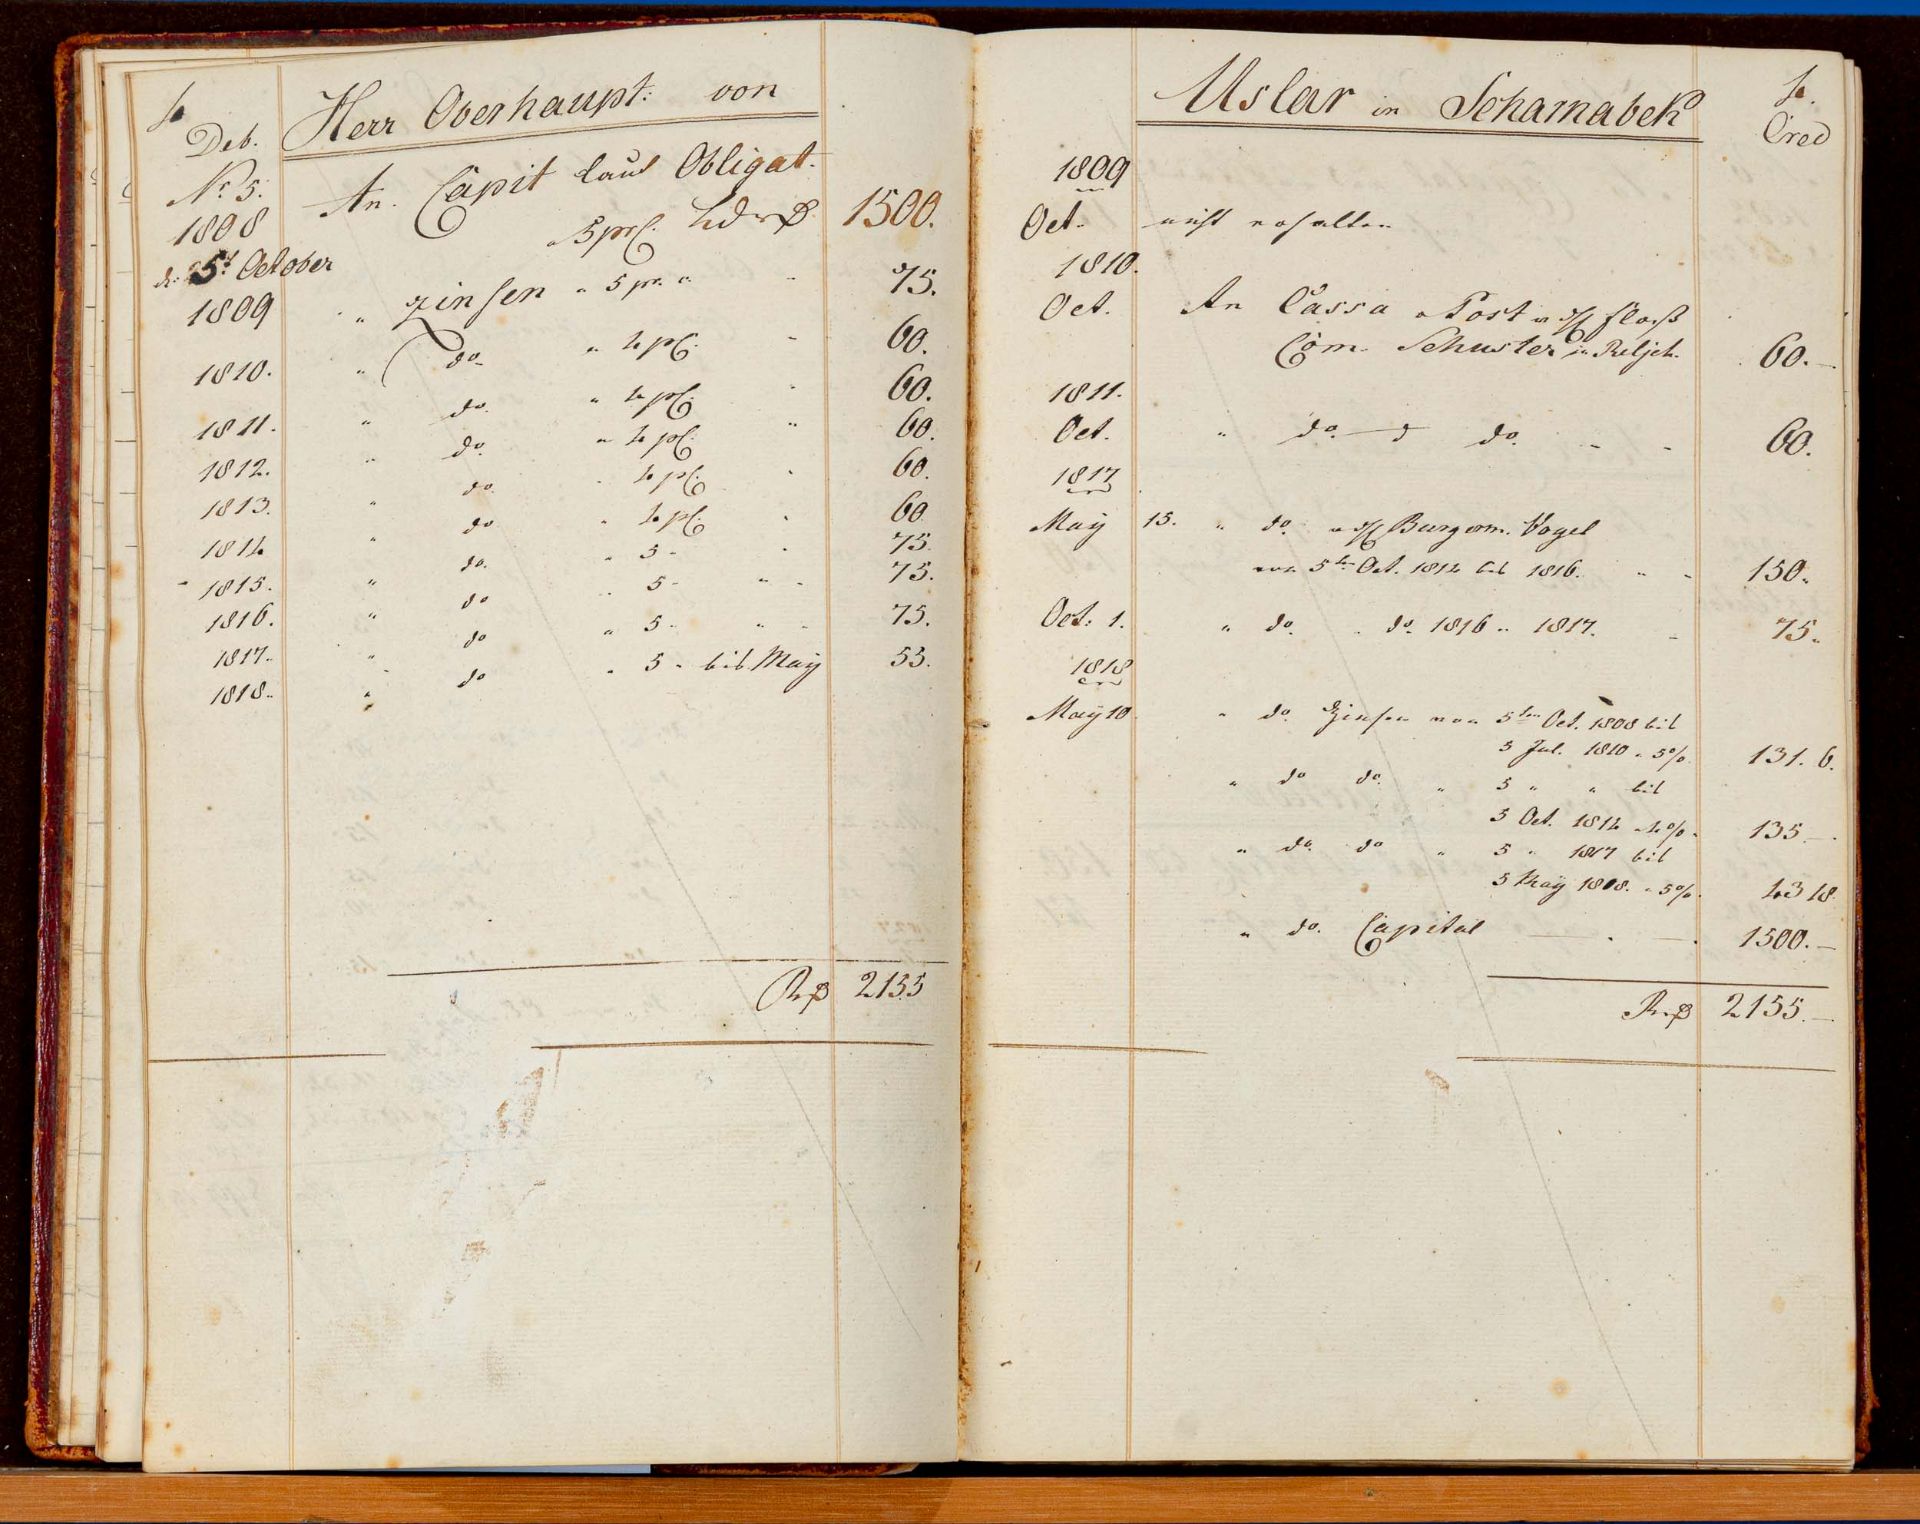 4
Deb.
Herr Oberhaupt: von
Nr. 5.
An. Capit laut Obligat.
1808
5 prC. Ldor 1500.
d. 5t October
1809 " Zinsen " 5 pr. C. - 75.
1810. " do " 4 pC. - 60.
1811. " do. " 4 pC. - 60.
1812. " do. " 4 pC. " 60.
1813. " do. " 4 pC. - 60.
1814 " do " 4 pC. - 60
1815. " do. " 5 - - 75.
1816. " do " 5 - " - 75.
1817. " do " 5 - " - 75.
1818. " do " 5 - bis May 53.
2155
4.
Cred
Uslar in Scharnabek
1809
Oct. nicht erhalten
1810.
Oct. An Cassa Post
Com. Schuster in 60.-
1811.
Oct. " do. do. - - 60.
1817
May 15. " do. Burgerm. Vogel
von 5ten Oct. 1814 bis 1816. " - 150.
Oct. 1. " do. " do. 1816 " 1817. - 75.
1818
May 10 " do. Zinsen von 5ten Oct. 1808 bis
5 Jul. 1810 " 5% 131. 6.
" do do. " 5 " " bis
5 Oct. 1814 " 4% 135.-
" do. do " 5 " 1817 bis
5 May 1818. " 5% 43 18.
" do. Capital - . - 1500.-
2155.-